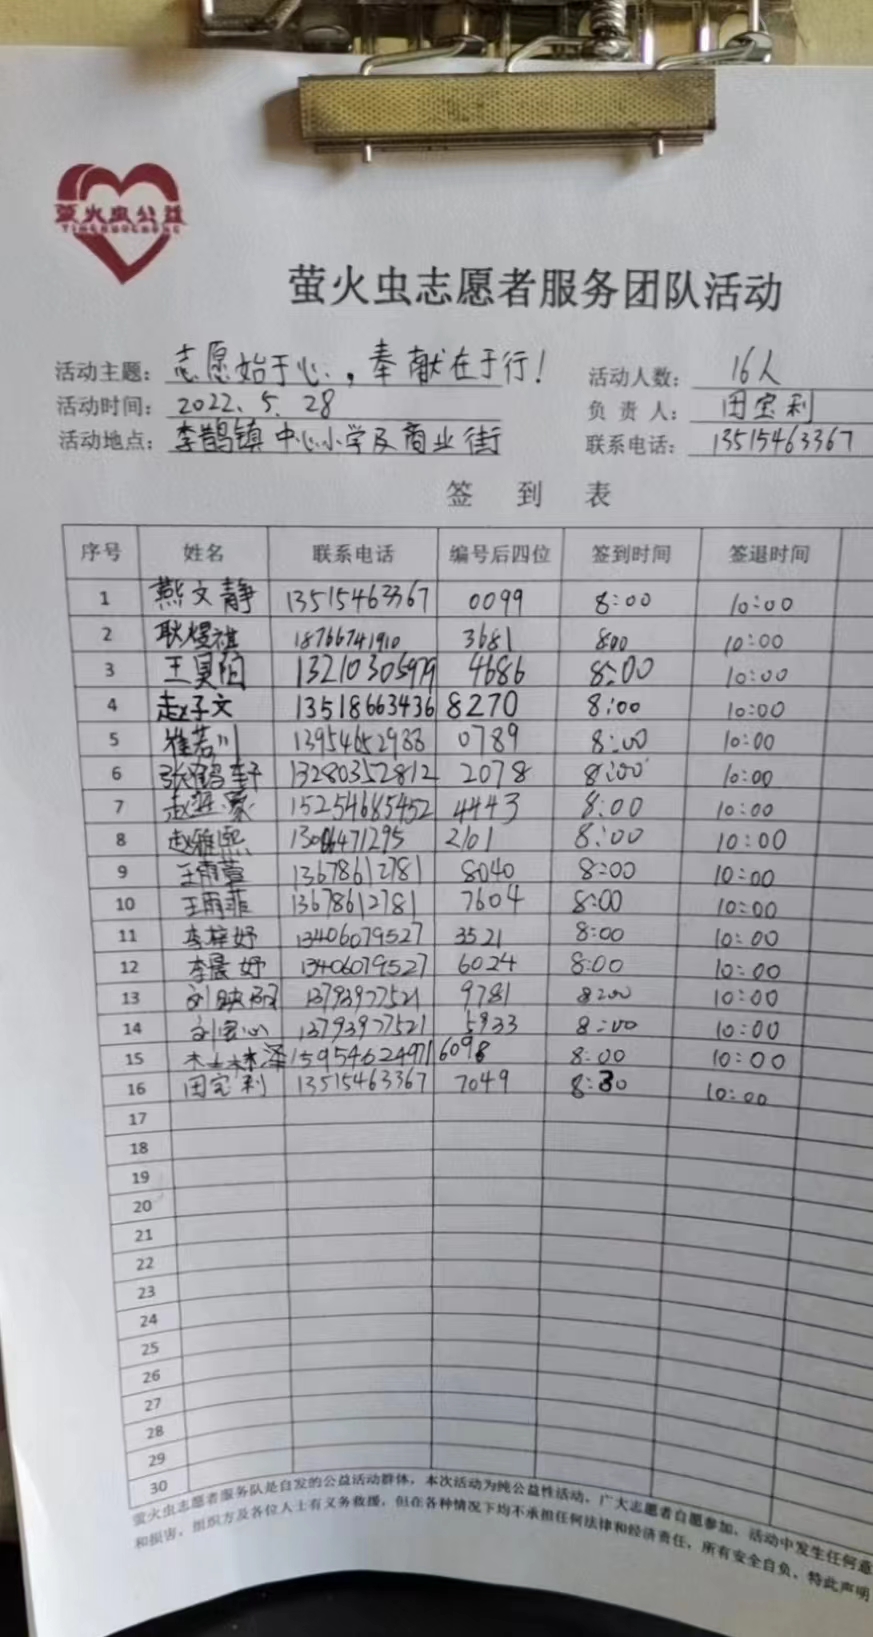 萤火虫公益
YINGHUOCHONG
萤火虫志愿者服务团队活动
活动主题：志愿始于心，奉献在于行！ 活动人数：16人
活动时间：2022.5.28 负责人：田宝利
活动地点：李鹊镇中心小学及商业街 联系电话：13515463367
签到表
序号 姓名 联系电话 编号后四位 签到时间 签退时间
1 燕文静 13515463367 0099 8:00 10:00
2 耿煜祺 18766741910 3681 8:00 10:00
3 王昊阳 13210305979 4686 8:00 10:00
4 赵子文 13518663436 8270 8:00 10:00
5 崔若川 13954652988 0789 8:00 10:00
6 张鹤轩 13280352812 2078 8:00 10:00
7 15254685452 4443 8:00 10:00
8 赵雅熙 2101 8:00 10:00
9 王雨萱 13678612781 8040 8:00 10:00
10 王雨菲 13678612781 7604 8:00 10:00
11 李梓妤 13406079527 3521 8:00 10:00
12 李晨妤 13406079527 6024 8:00 10:00
13 刘 13793977521 9781 8:00 10:00
14 刘 心 13793977521 5933 8:00 10:00
15 泽 15954624971 6098 8:00 10:00
16 田宝利 13515463367 7049 8:30 10:00
17
18
19
20
21
22
23
24
25
26
27
28
29
30
萤火虫志愿者服务队是自发的公益活动群体，本次活动为纯公益性活动，广大志愿者自愿参加，活动中发生任何意
和损害，组织方及各位人士有义务救援，但在各种情况下均不承担任何法律和经济责任，所有安全自负，特此声明